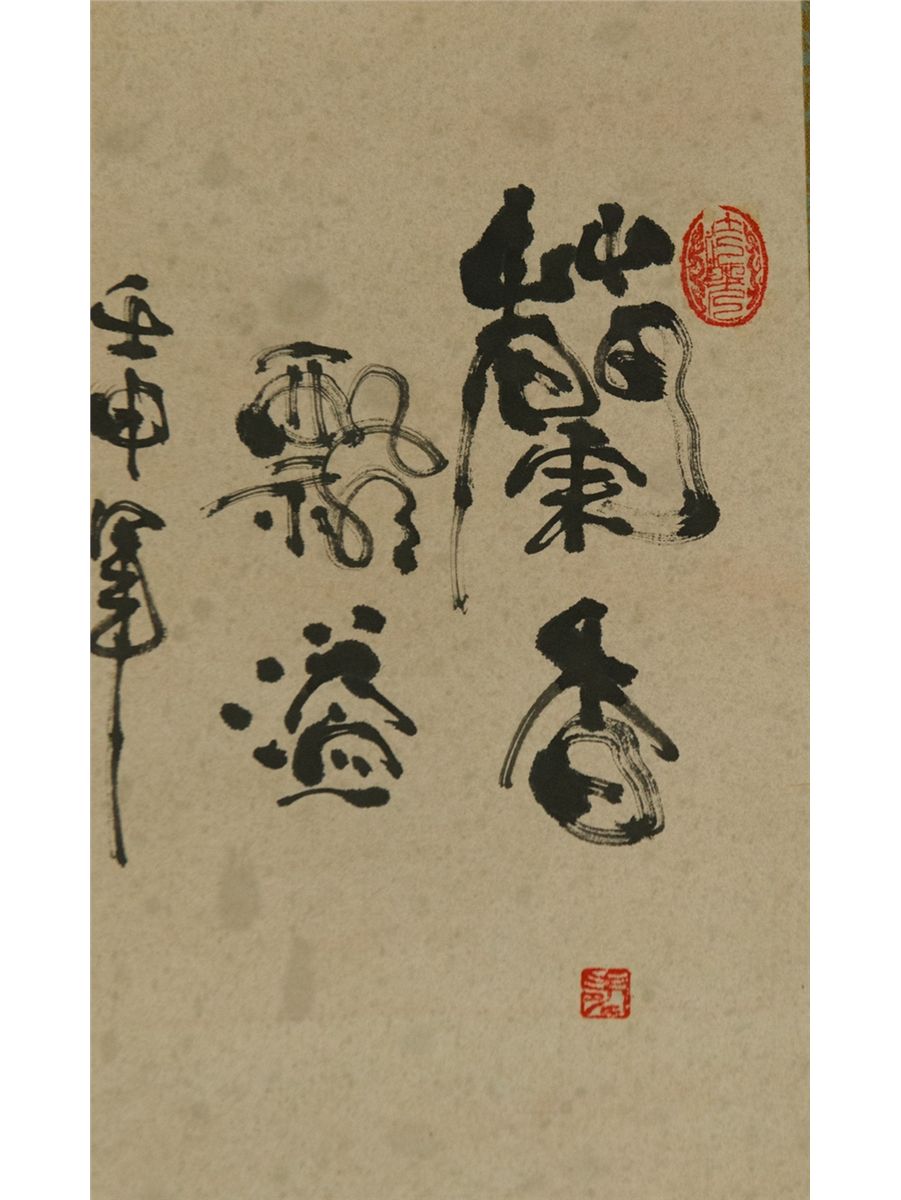 蘭香
飄溢
壬申年